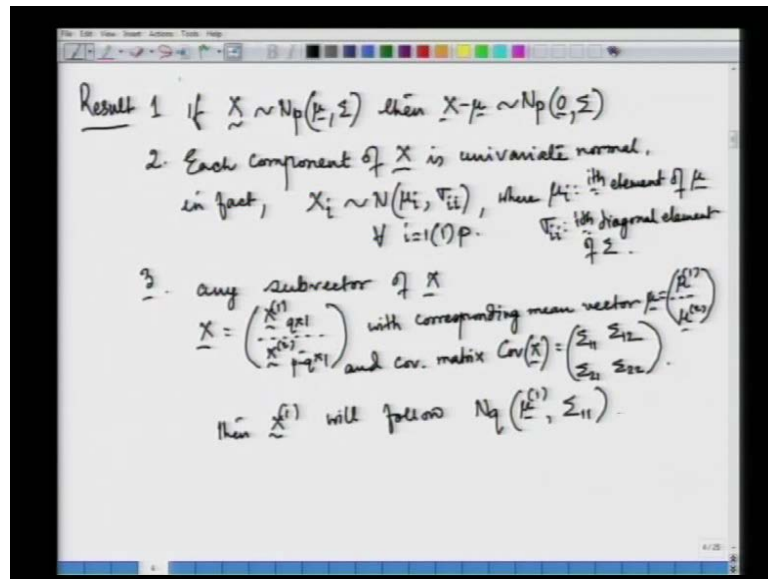 File Edit View Insert Actions Tools Help
Result 1 if X ~ Np(μ, Σ) then X-μ ~ Np(0, Σ)
2. Each component of X is univariate normal.
in fact, Xi ~ N(μi, σii), where μi: ith element of μ
∀ i=1(1)p. σii: ith diagonal element
of Σ.
3. any subvector of X
X = (X^(1) q×1 / X^(2) p-q×1) with corresponding mean vector μ = (μ^(1) / μ^(2))
and cov. matrix Cov(X) = (Σ11 Σ12 / Σ21 Σ22).
then X^(1) will follow Nq(μ^(1), Σ11).